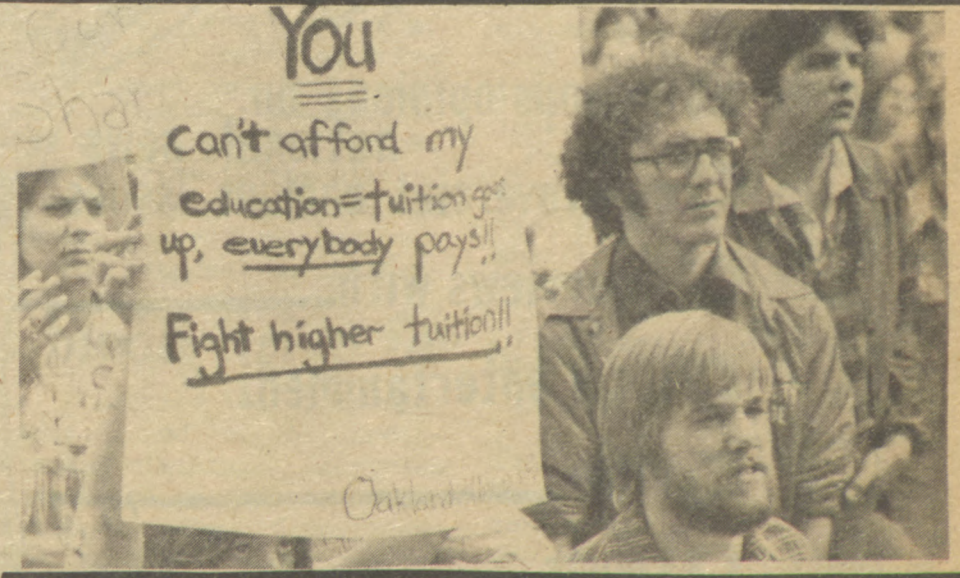 YOU
Can't afford my
education=tuition goes
up, everybody pays!!
Fight higher tuition!!
Oakland